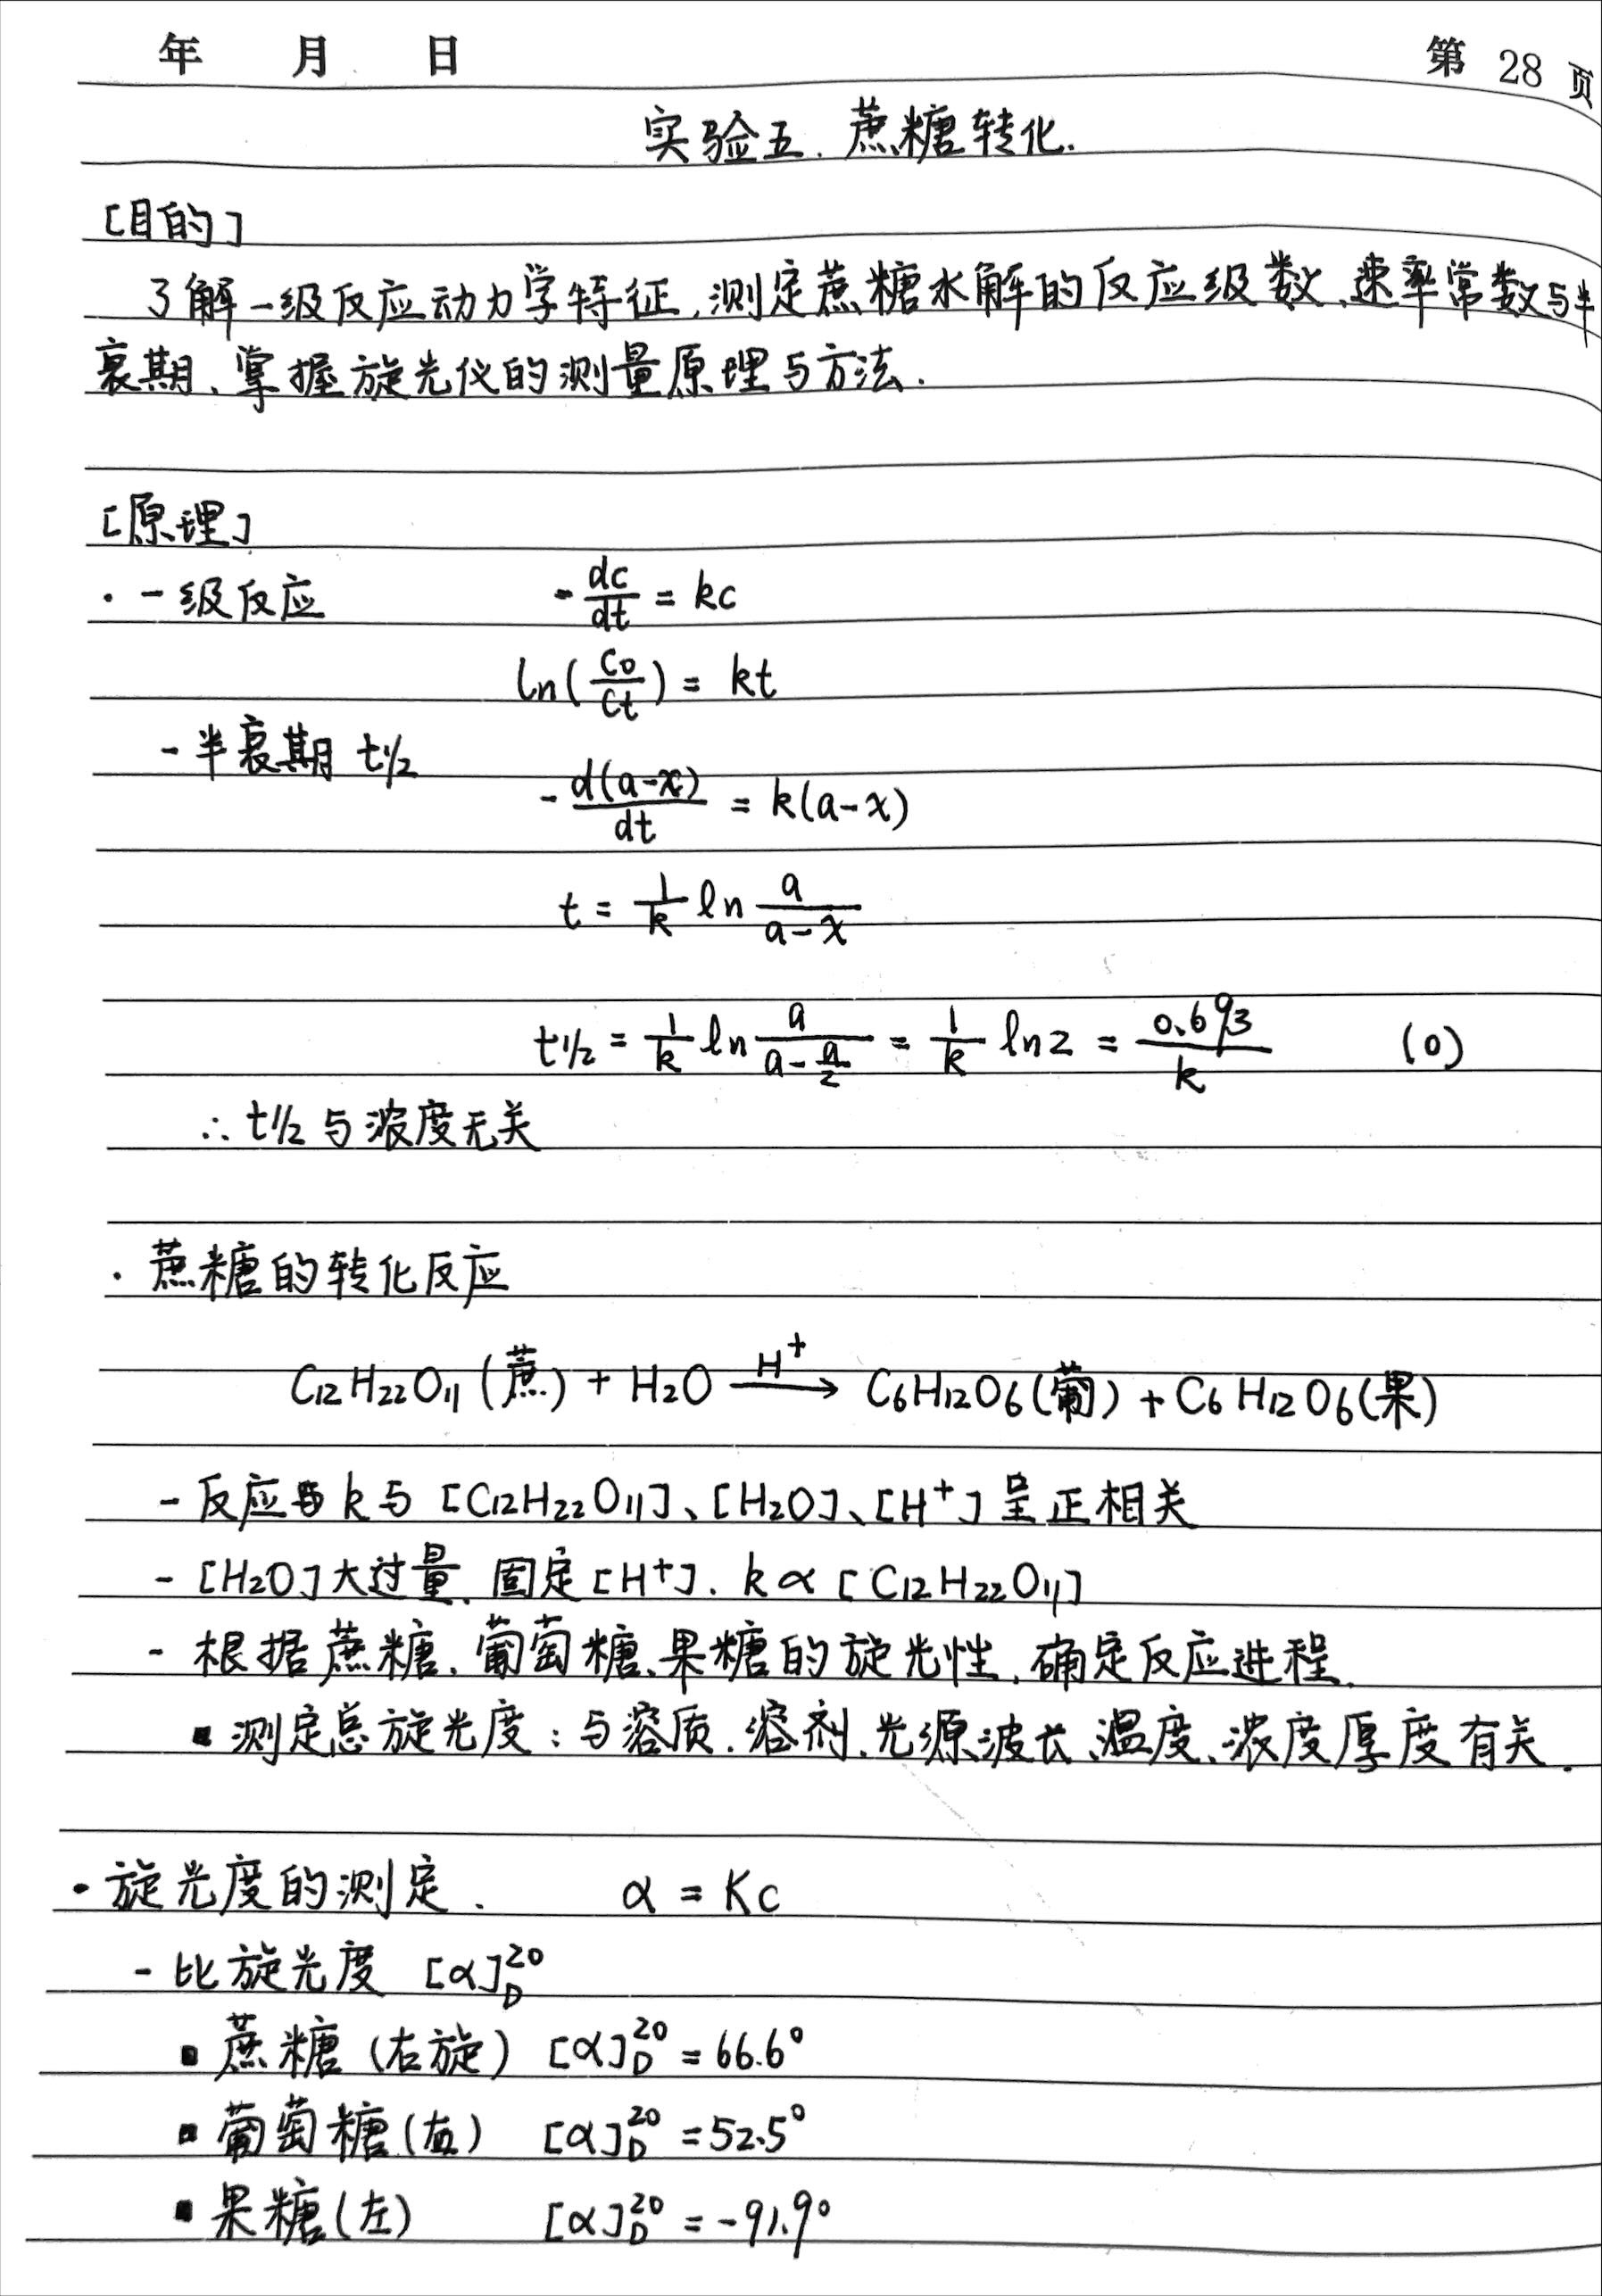 年 月 日 第 28 页
实验五. 蔗糖转化.
[目的]
了解一级反应动力学特征,测定蔗糖水解的反应级数、速率常数与半
衰期、掌握旋光仪的测量原理与方法.
[原理]
· 一级反应 -dc/dt = kc
ln(C0/Ct) = kt
- 半衰期 t1/2
-d(a-x)/dt = k(a-x)
t = 1/k ln a/(a-x)
t1/2 = 1/k ln a/(a-a/2) = 1/k ln2 = 0.693/k (0)
∴ t1/2 与浓度无关
· 蔗糖的转化反应
C12H22O11 (蔗) + H2O —H+→ C6H12O6(葡) + C6H12O6(果)
- 反应 k与 [C12H22O11]、[H2O]、[H+] 呈正相关
- [H2O]大过量. 固定[H+]. k ∝ [C12H22O11]
- 根据蔗糖、葡萄糖、果糖的旋光性,确定反应进程.
▪ 测定总旋光度:与溶质.溶剂.光源波长、温度、浓度厚度有关.
· 旋光度的测定. α = Kc
- 比旋光度 [α]D20
▪ 蔗糖 (右旋) [α]D20 = 66.6°
▪ 葡萄糖(右) [α]D20 = 52.5°
▪ 果糖(左) [α]D20 = -91.9°